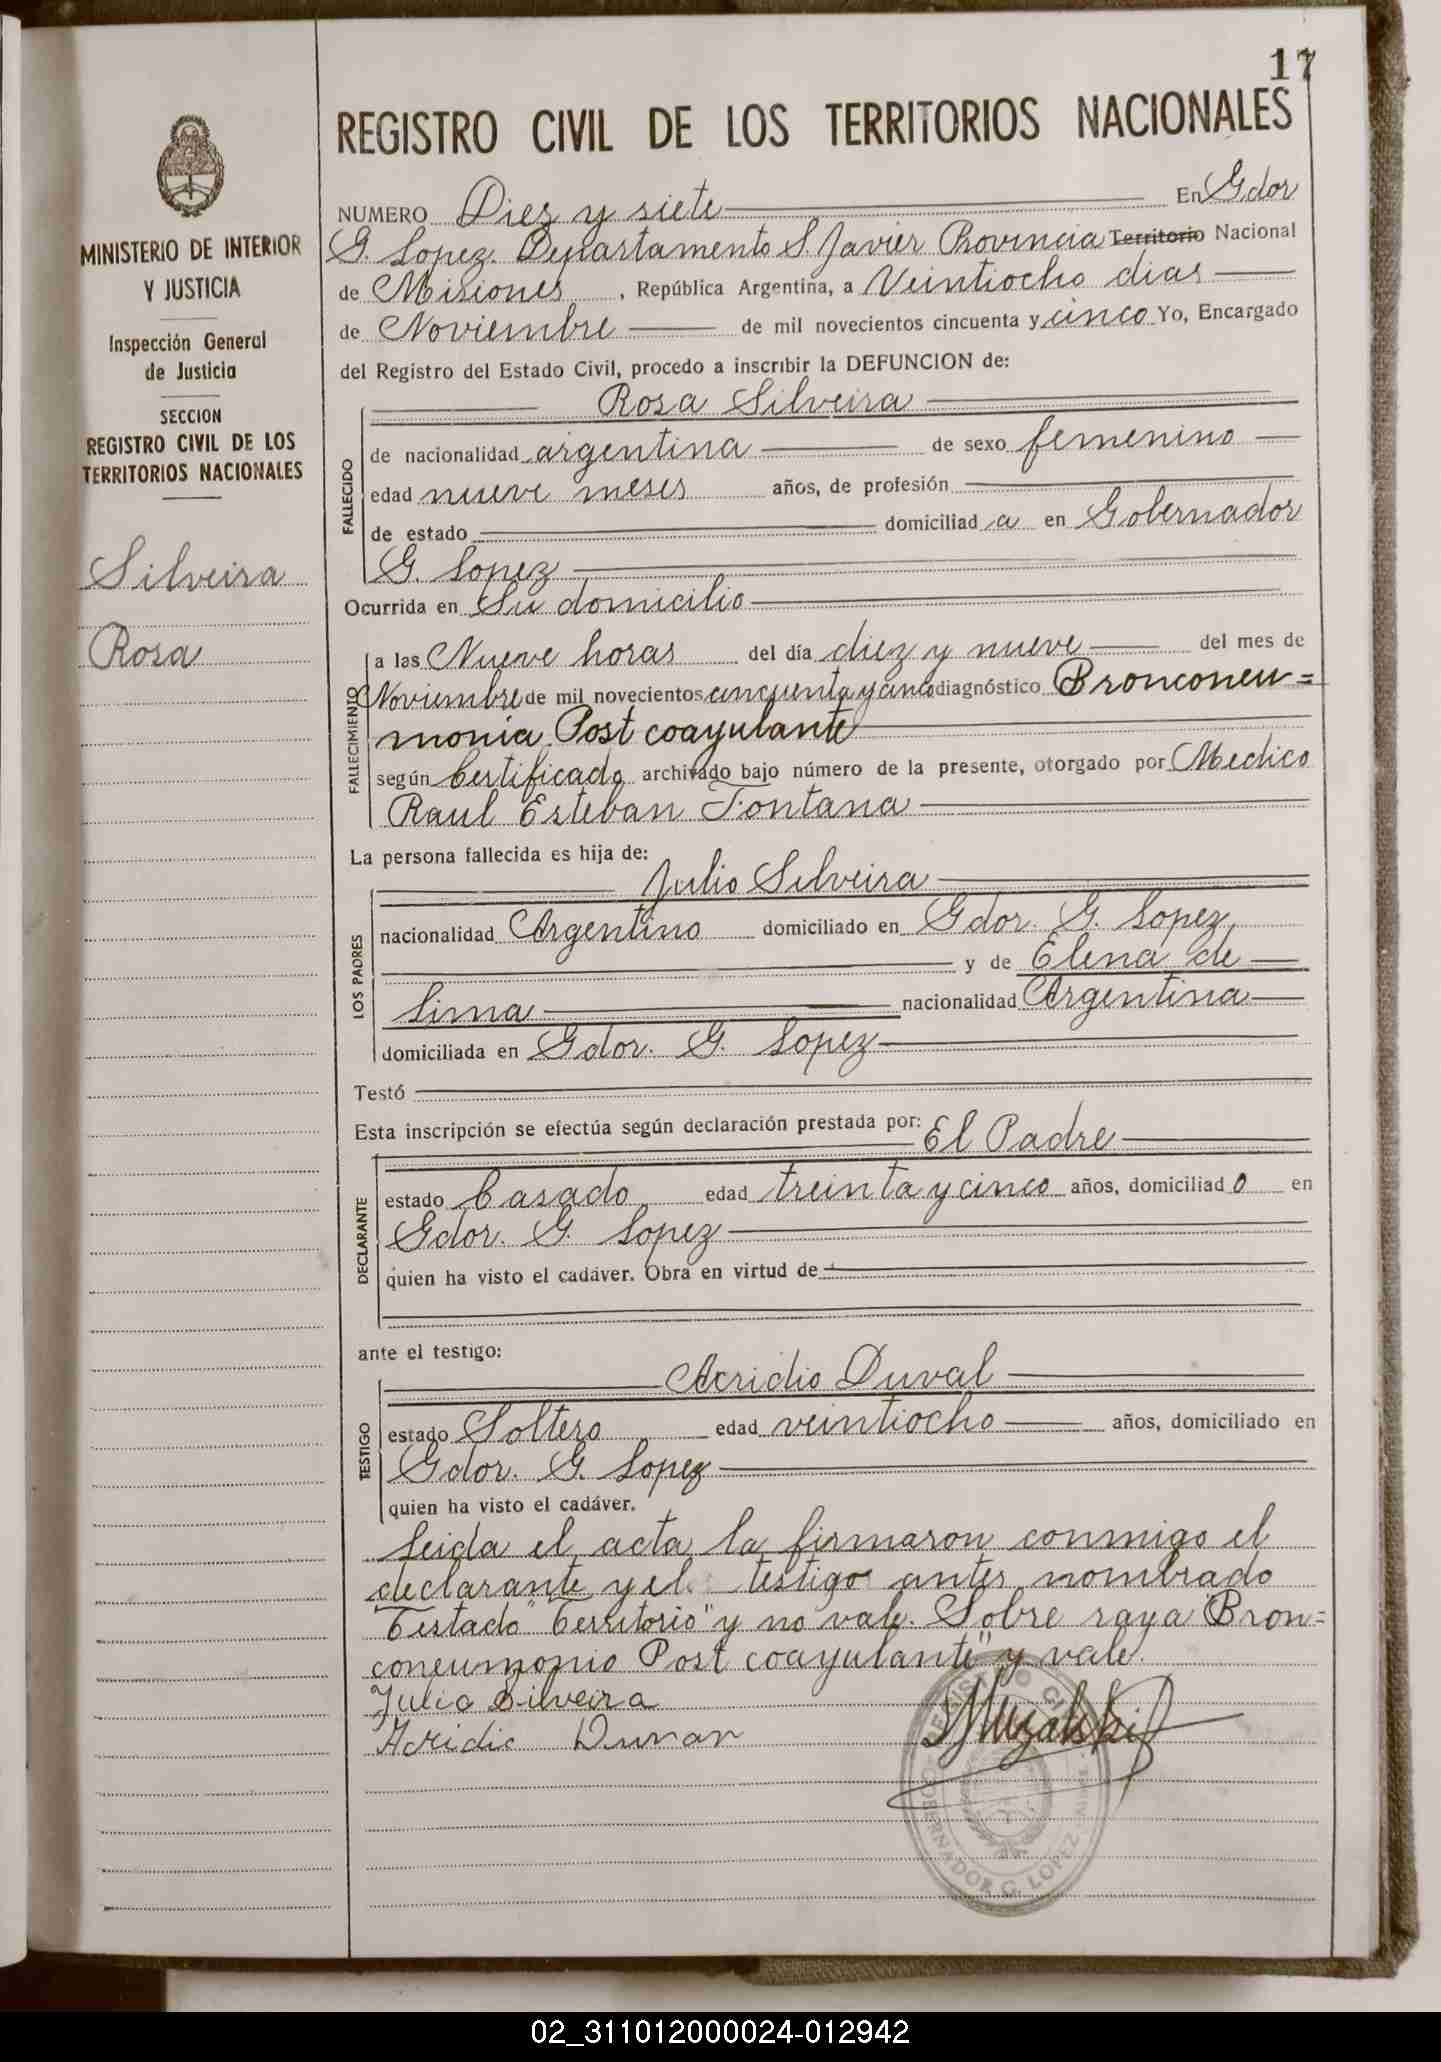 17
REGISTRO CIVIL DE LOS TERRITORIOS NACIONALES
MINISTERIO DE INTERIOR
Y JUSTICIA
Inspección General
de Justicia
SECCION
REGISTRO CIVIL DE LOS
TERRITORIOS NACIONALES
Silveira
Rosa
NUMERO Diez y siete En Gdor
G. Lopez. Departamento S. Javier Provincia Territorio Nacional
de Misiones, República Argentina, a Veintiocho dias
de Noviembre de mil novecientos cincuenta y cinco Yo, Encargado
del Registro del Estado Civil, procedo a inscribir la DEFUNCION de:
Rosa Silveira
FALLECIDO
de nacionalidad argentina de sexo femenino
edad nueve meses años, de profesión
de estado domiciliad a en Gobernador
G. Lopez
Ocurrida en Su domicilio
FALLECIMIENTO
a las Nueve horas del día diez y nueve del mes de
Noviembre de mil novecientos cincuenta y cinco diagnóstico Bronconeu=
monia Post coayulante
según Certificado archivado bajo número de la presente, otorgado por Medico
Raul Esteban Fontana
La persona fallecida es hija de:
Julio Silveira
LOS PADRES
nacionalidad Argentino domiciliado en Gdor. G. Lopez
y de Elena de
Lima nacionalidad Argentina
domiciliada en Gdor. G. Lopez
Testó
Esta inscripción se efectúa según declaración prestada por: El Padre
DECLARANTE
estado Casado edad treinta y cinco años, domiciliad o en
Gdor. G. Lopez
quien ha visto el cadáver. Obra en virtud de
ante el testigo:
Acridio Duval
TESTIGO
estado Soltero edad veintiocho años, domiciliado en
Gdor. G. Lopez
quien ha visto el cadáver.
Leida el acta la firmaron conmigo el
declarante y el testigo antes nombrado
Testado "Territorio" y no vale. Sobre raya "Bron=
coneumonio Post coayulante" y vale.
Julio Silveira
Acridio Duvar
REGISTRO CIVIL
GOBERNADOR G. LOPEZ
02_311012000024-012942